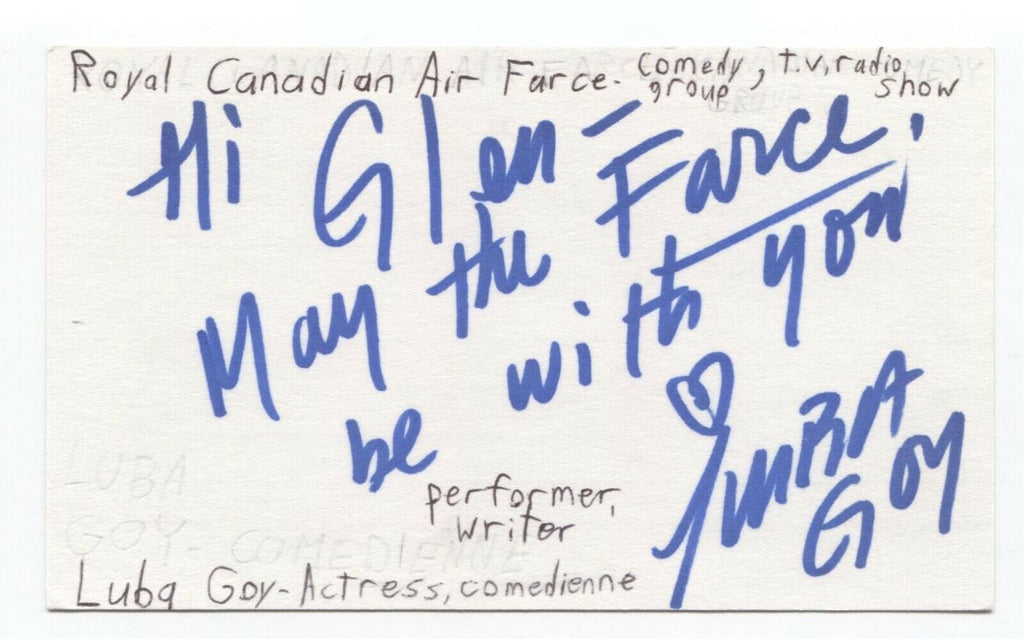 Royal Canadian Air Farce - comedy group, t.v, radio show
Hi Glen -
May the Farce
be with you!
LUBA
GOY
performer,
writer
Luba Goy - Actress, comedienne
LUBA
GOY - COMEDIENNE